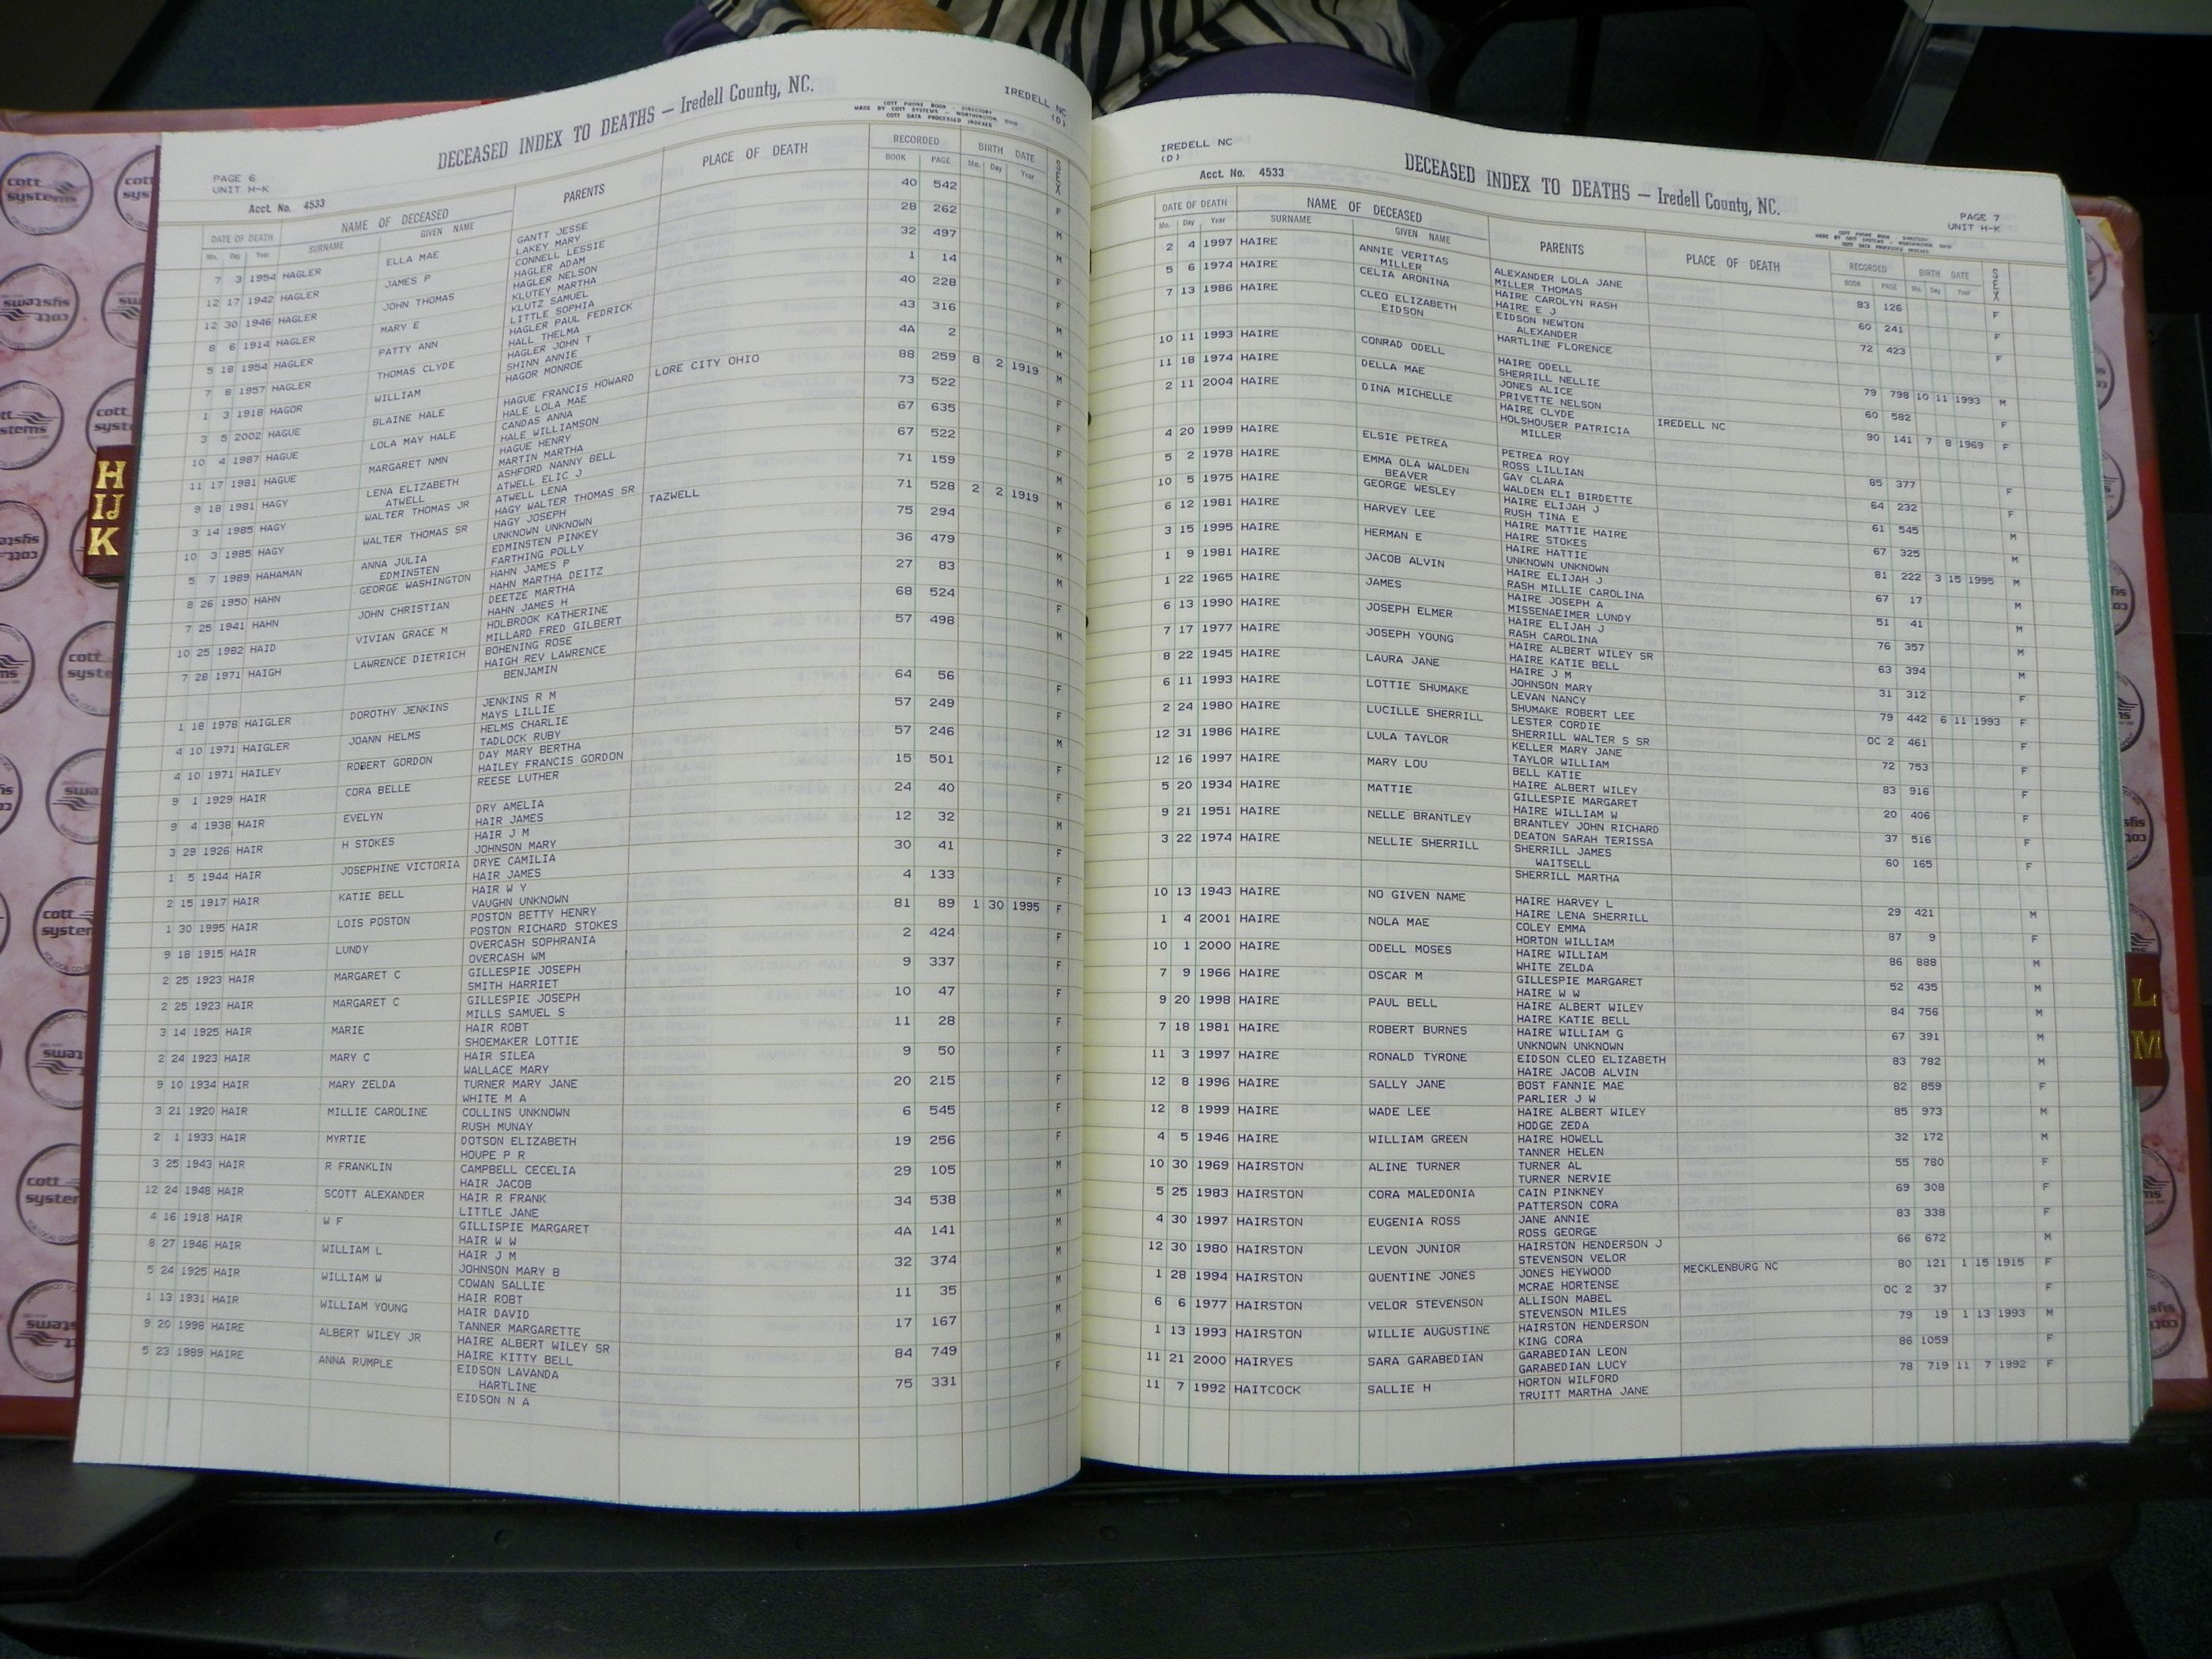 DECEASED INDEX TO DEATHS — Iredell County, NC.
COTT PHONE BOOK - DIRECTORY
MADE BY COTT SYSTEMS - WORTHINGTON, OHIO
COTT DATA PROCESSED INDEXES
IREDELL NC
(D)
PAGE 6
UNIT H-K
Acct. No. 4533
DATE OF DEATH NAME OF DECEASED PARENTS PLACE OF DEATH RECORDED BIRTH DATE SEX
Mo. Day Year SURNAME GIVEN NAME BOOK PAGE Mo. Day Year
7 3 1954 HAGLER ELLA MAE GANTT JESSE 40 542 F
LAKEY MARY
12 17 1942 HAGLER JAMES P CONNELL LESSIE 28 262 M
HAGLER ADAM
12 30 1946 HAGLER JOHN THOMAS HAGLER NELSON 32 497 M
KLUTEY MARTHA
8 6 1914 HAGLER MARY E KLUTZ SAMUEL 1 14 F
LITTLE SOPHIA
5 18 1954 HAGLER PATTY ANN HAGLER PAUL FEDRICK 40 228 F
HALL THELMA
7 8 1957 HAGLER THOMAS CLYDE HAGLER JOHN T 43 316 M
SHINN ANNIE
1 3 1918 HAGOR WILLIAM HAGOR MONROE 4A 2 M
3 5 2002 HAGUE BLAINE HALE HAGUE FRANCIS HOWARD LORE CITY OHIO 88 259 8 2 1919 M
HALE LOLA MAE
10 4 1987 HAGUE LOLA MAY HALE CANDAS ANNA 73 522 F
HALE WILLIAMSON
11 17 1981 HAGUE MARGARET NMN HAGUE HENRY 67 635 F
MARTIN MARTHA
9 18 1981 HAGY LENA ELIZABETH ASHFORD NANNY BELL 67 522 F
ATWELL ATWELL ELIC J
3 14 1985 HAGY WALTER THOMAS JR ATWELL LENA 71 159 M
HAGY WALTER THOMAS SR
10 3 1985 HAGY WALTER THOMAS SR HAGY JOSEPH TAZWELL 71 528 2 2 1919 M
UNKNOWN UNKNOWN
5 7 1989 HAHAMAN ANNA JULIA EDMINSTEN PINKEY 75 294 F
EDMINSTEN FARTHING POLLY
8 26 1950 HAHN GEORGE WASHINGTON HAHN JAMES P 36 479 M
HAHN MARTHA DEITZ
7 25 1941 HAHN JOHN CHRISTIAN DEETZE MARTHA 27 83 M
HAHN JAMES H
10 25 1982 HAID VIVIAN GRACE M HOLBROOK KATHERINE 68 524 F
MILLARD FRED GILBERT
7 28 1971 HAIGH LAWRENCE DIETRICH BOHENING ROSE 57 498 M
HAIGH REV LAWRENCE
BENJAMIN
1 18 1978 HAIGLER DOROTHY JENKINS JENKINS R M 64 56 F
MAYS LILLIE
4 10 1971 HAIGLER JOANN HELMS HELMS CHARLIE 57 249 F
TADLOCK RUBY
4 10 1971 HAILEY ROBERT GORDON DAY MARY BERTHA 57 246 M
HAILEY FRANCIS GORDON
9 1 1929 HAIR CORA BELLE REESE LUTHER 15 501 F
9 4 1938 HAIR EVELYN DRY AMELIA 24 40 F
HAIR JAMES
3 29 1926 HAIR H STOKES HAIR J M 12 32 M
JOHNSON MARY
1 5 1944 HAIR JOSEPHINE VICTORIA DRYE CAMILIA 30 41 F
HAIR JAMES
2 15 1917 HAIR KATIE BELL HAIR W Y 4 133 F
VAUGHN UNKNOWN
1 30 1995 HAIR LOIS POSTON POSTON BETTY HENRY 81 89 1 30 1995 F
POSTON RICHARD STOKES
9 18 1915 HAIR LUNDY OVERCASH SOPHRANIA 2 424 F
OVERCASH WM
2 25 1923 HAIR MARGARET C GILLESPIE JOSEPH 9 337 F
SMITH HARRIET
2 25 1923 HAIR MARGARET C GILLESPIE JOSEPH 10 47 F
MILLS SAMUEL S
3 14 1925 HAIR MARIE HAIR ROBT 11 28 F
SHOEMAKER LOTTIE
2 24 1923 HAIR MARY C HAIR SILEA 9 50 F
WALLACE MARY
9 10 1934 HAIR MARY ZELDA TURNER MARY JANE 20 215 F
WHITE M A
3 21 1920 HAIR MILLIE CAROLINE COLLINS UNKNOWN 6 545 F
RUSH MUNAY
2 1 1933 HAIR MYRTIE DOTSON ELIZABETH 19 256 F
HOUPE P R
3 25 1943 HAIR R FRANKLIN CAMPBELL CECELIA 29 105 M
HAIR JACOB
12 24 1948 HAIR SCOTT ALEXANDER HAIR R FRANK 34 538 M
LITTLE JANE
4 16 1918 HAIR W F GILLISPIE MARGARET 4A 141 M
HAIR W W
8 27 1946 HAIR WILLIAM L HAIR J M 32 374 M
JOHNSON MARY B
5 24 1925 HAIR WILLIAM W COWAN SALLIE 11 35 M
HAIR ROBT
1 13 1931 HAIR WILLIAM YOUNG HAIR DAVID 17 167 M
TANNER MARGARETTE
9 20 1998 HAIRE ALBERT WILEY JR HAIRE ALBERT WILEY SR 84 749 M
HAIRE KITTY BELL
5 23 1989 HAIRE ANNA RUMPLE EIDSON LAVANDA 75 331 F
HARTLINE
EIDSON N A
IREDELL NC
(D)
Acct. No. 4533
DECEASED INDEX TO DEATHS — Iredell County, NC.
PAGE 7
UNIT H-K
DATE OF DEATH NAME OF DECEASED PARENTS PLACE OF DEATH RECORDED BIRTH DATE SEX
Mo. Day Year SURNAME GIVEN NAME BOOK PAGE Mo. Day Year
2 4 1997 HAIRE ANNIE VERITAS ALEXANDER LOLA JANE 83 126 F
MILLER MILLER THOMAS
5 6 1974 HAIRE CELIA ARONINA HAIRE CAROLYN RASH 60 241 F
HAIRE E J
7 13 1986 HAIRE CLEO ELIZABETH EIDSON NEWTON 72 423 F
EIDSON ALEXANDER
HARTLINE FLORENCE
10 11 1993 HAIRE CONRAD ODELL HAIRE ODELL 79 798 10 11 1993 M
SHERRILL NELLIE
11 18 1974 HAIRE DELLA MAE JONES ALICE 60 582 F
PRIVETTE NELSON
2 11 2004 HAIRE DINA MICHELLE HAIRE CLYDE IREDELL NC 90 141 7 8 1969 F
HOLSHOUSER PATRICIA
MILLER
4 20 1999 HAIRE ELSIE PETREA PETREA ROY 85 377 F
ROSS LILLIAN
5 2 1978 HAIRE EMMA OLA WALDEN GAY CLARA 64 232 F
BEAVER WALDEN ELI BIRDETTE
10 5 1975 HAIRE GEORGE WESLEY HAIRE ELIJAH J 61 545 M
RUSH TINA E
6 12 1981 HAIRE HARVEY LEE HAIRE MATTIE HAIRE 67 325 M
HAIRE STOKES
3 15 1995 HAIRE HERMAN E HAIRE HATTIE 81 222 3 15 1995 M
UNKNOWN UNKNOWN
1 9 1981 HAIRE JACOB ALVIN HAIRE ELIJAH J 67 17 M
RASH MILLIE CAROLINA
1 22 1965 HAIRE JAMES HAIRE JOSEPH A 51 41 M
MISSENAEIMER LUNDY
6 13 1990 HAIRE JOSEPH ELMER HAIRE ELIJAH J 76 357 M
RASH CAROLINA
7 17 1977 HAIRE JOSEPH YOUNG HAIRE ALBERT WILEY SR 63 394 M
HAIRE KATIE BELL
8 22 1945 HAIRE LAURA JANE HAIRE J M 31 312 F
JOHNSON MARY
6 11 1993 HAIRE LOTTIE SHUMAKE LEVAN NANCY 79 442 6 11 1993 F
SHUMAKE ROBERT LEE
2 24 1980 HAIRE LUCILLE SHERRILL LESTER CORDIE OC 2 461 F
SHERRILL WALTER S SR
12 31 1986 HAIRE LULA TAYLOR KELLER MARY JANE 72 753 F
TAYLOR WILLIAM
12 16 1997 HAIRE MARY LOU BELL KATIE 83 916 F
HAIRE ALBERT WILEY
5 20 1934 HAIRE MATTIE GILLESPIE MARGARET 20 406 F
HAIRE WILLIAM W
9 21 1951 HAIRE NELLE BRANTLEY BRANTLEY JOHN RICHARD 37 516 F
DEATON SARAH TERISSA
3 22 1974 HAIRE NELLIE SHERRILL SHERRILL JAMES 60 165 F
WAITSELL
SHERRILL MARTHA
10 13 1943 HAIRE NO GIVEN NAME HAIRE HARVEY L 29 421 M
HAIRE LENA SHERRILL
1 4 2001 HAIRE NOLA MAE COLEY EMMA 87 9 F
HORTON WILLIAM
10 1 2000 HAIRE ODELL MOSES HAIRE WILLIAM 86 888 M
WHITE ZELDA
7 9 1966 HAIRE OSCAR M GILLESPIE MARGARET 52 435 M
HAIRE W W
9 20 1998 HAIRE PAUL BELL HAIRE ALBERT WILEY 84 756 M
HAIRE KATIE BELL
7 18 1981 HAIRE ROBERT BURNES HAIRE WILLIAM G 67 391 M
UNKNOWN UNKNOWN
11 3 1997 HAIRE RONALD TYRONE EIDSON CLEO ELIZABETH 83 782 M
HAIRE JACOB ALVIN
12 8 1996 HAIRE SALLY JANE BOST FANNIE MAE 82 859 F
PARLIER J W
12 8 1999 HAIRE WADE LEE HAIRE ALBERT WILEY 85 973 M
HODGE ZEDA
4 5 1946 HAIRE WILLIAM GREEN HAIRE HOWELL 32 172 M
TANNER HELEN
10 30 1969 HAIRSTON ALINE TURNER TURNER AL 55 780 F
TURNER NERVIE
5 25 1983 HAIRSTON CORA MALEDONIA CAIN PINKNEY 69 308 F
PATTERSON CORA
4 30 1997 HAIRSTON EUGENIA ROSS JANE ANNIE 83 338 F
ROSS GEORGE
12 30 1980 HAIRSTON LEVON JUNIOR HAIRSTON HENDERSON J 66 672 M
STEVENSON VELOR
1 28 1994 HAIRSTON QUENTINE JONES JONES HEYWOOD MECKLENBURG NC 80 121 1 15 1915 F
MCRAE HORTENSE
6 6 1977 HAIRSTON VELOR STEVENSON ALLISON MABEL OC 2 37 F
STEVENSON MILES
1 13 1993 HAIRSTON WILLIE AUGUSTINE HAIRSTON HENDERSON 79 19 1 13 1993 M
KING CORA
11 21 2000 HAIRYES SARA GARABEDIAN GARABEDIAN LEON 86 1059 F
GARABEDIAN LUCY
11 7 1992 HAITCOCK SALLIE H HORTON WILFORD 78 719 11 7 1992 F
TRUITT MARTHA JANE
H
IJ
K
L
M
cott
systems